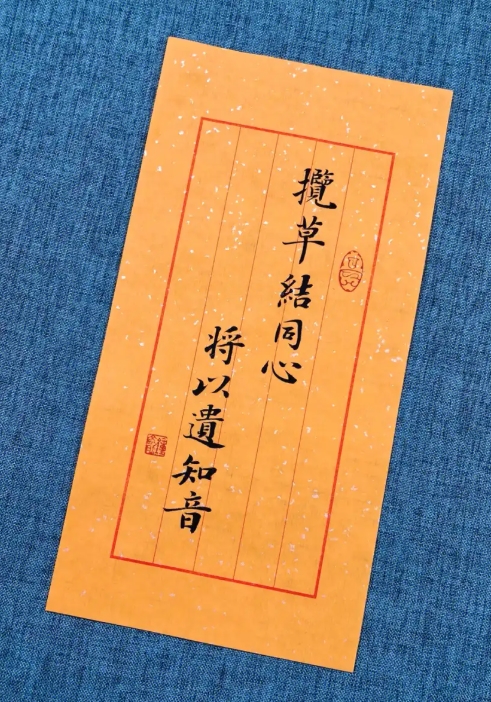 攬草結同心
将以遺知音